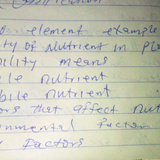 Classification
element example
ty of Nutrient in Pla
bility means
le nutrient
bile nutrient
ors that affect nut
nmental factor
Factors